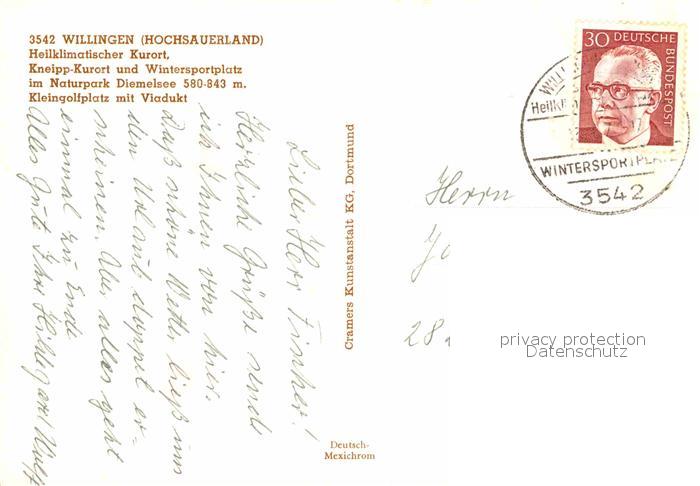 3542 WILLINGEN (HOCHSAUERLAND)
Heilklimatischer Kurort,
Kneipp-Kurort und Wintersportplatz
im Naturpark Diemelsee 580-843 m.
Kleingolfplatz mit Viadukt
Lieber Herr Fischer!
Herzliche Grüße sende
ich Ihnen von hier.
Daß schöne Wetter ließ uns
den Urlaub doppelt er-
scheinen. Aber alles geht
einmal zu Ende
Alles Gute Ihre Hildegard Wulf
Cramers Kunstanstalt KG, Dortmund
Deutsch-
Mexichrom
30 DEUTSCHE
BUNDESPOST
WINTERSPORTPLA
3542
Herrn
28
privacy protection
Datenschutz